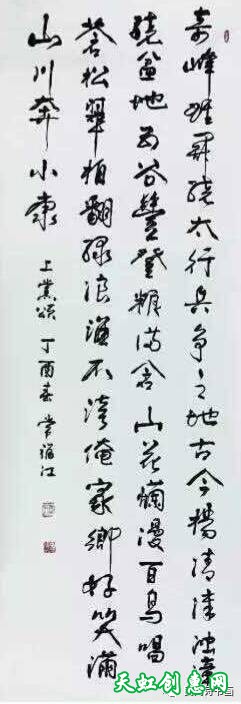 奇峰环翠绕太行兵争之地古今扬清漳浊漳
绕盆地五谷丰登粮满仓山花烂漫百鸟唱
苍松翠柏翻绿浪谁不夸俺家乡好笑满
山川奔小康
上党颂 丁酉春 常福江
天虹创意网